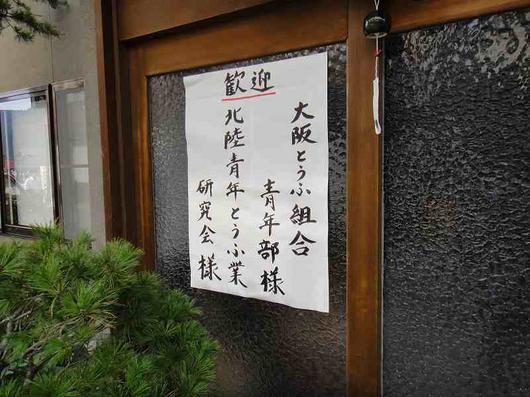 歓迎
大阪とうふ組合
青年部様
北陸青年とうふ業
研究会様